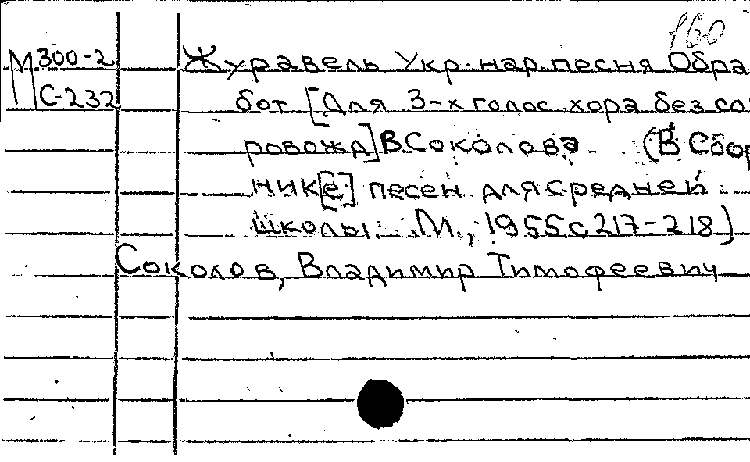 160
М 300-2 Журавель Укр. нар. песня Обра
С-232 бот [Для 3-х голос. хора без со
ровожд] В Соколова (В Сбор
нике] песен для средней
школы. М., 1955 с 217-218)
Соколов, Владимир Тимофеевич